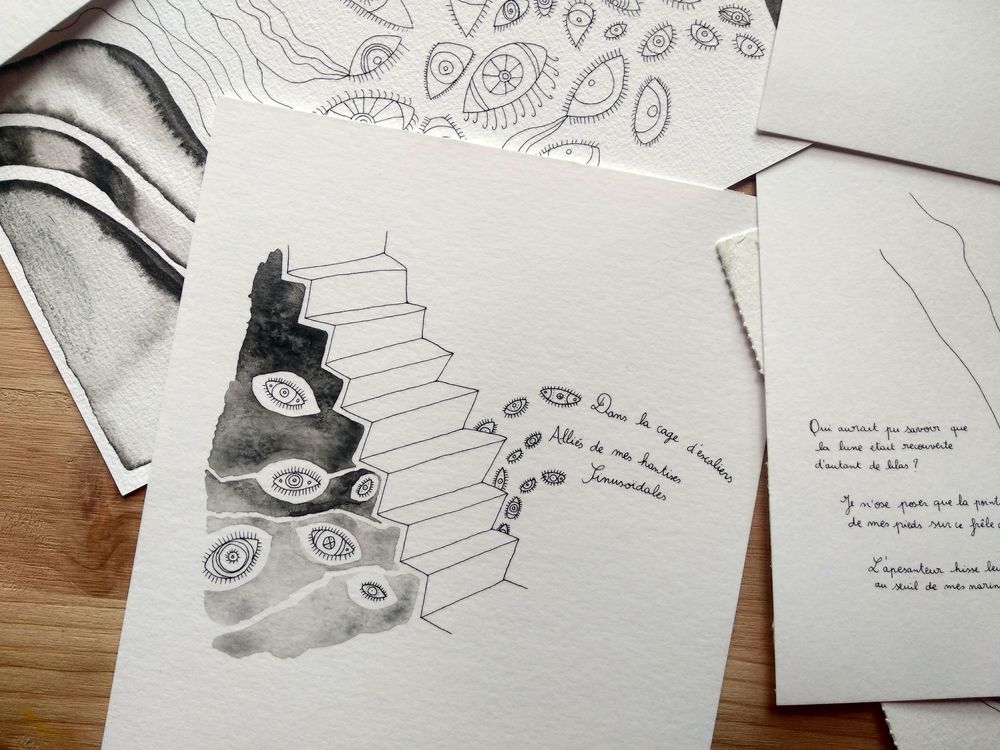 Dans la cage d'escaliers
Alliés de mes hantises
Sinusoïdales
Qui aurait pu savoir que
la lune était recouverte
d'autant de lilas ?
Je n'ose poser que la
de mes pieds sur ce frêle
L'apesanteur hisse
au seuil de mes